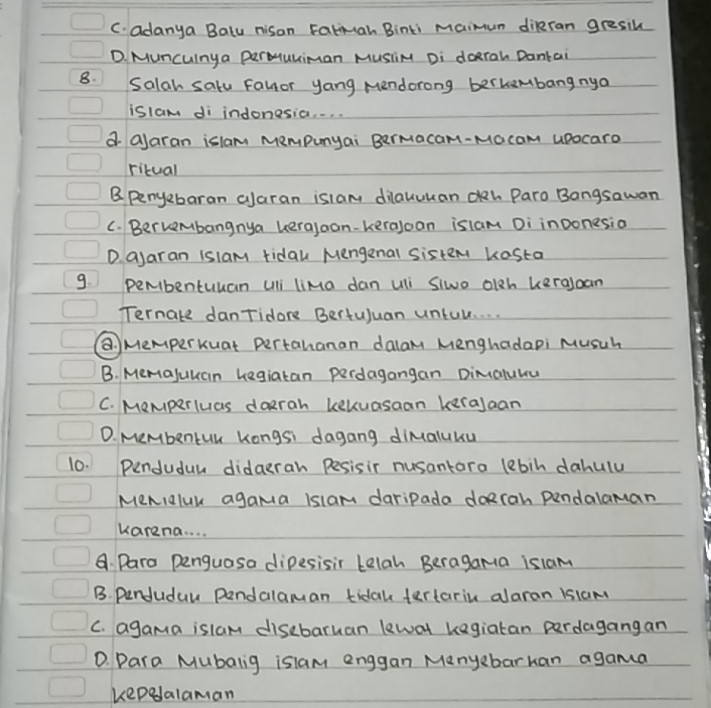 C. adanya Batu nisan Fatimah Binti Maimun dileran gresik
D. Munculnya permukiman Muslim Di daerah Pantai
8. Salah satu faktor yang Mendorong berkembangnya
islam di indonesia....
a. ajaran islam Mempunyai Bermacam-Macam upacara
ritual
B. Penyebaran ajaran islam dilakukan oleh Para Bangsawan
C. Berkembangnya kerajaan-kerajaan islam Di inDonesia
D. ajaran Islam tidak Mengenal sistem kasta
9. Pembentukan uli lima dan uli Siwa oleh kerajaan
Ternate dan Tidore Bertujuan untuk....
a. Memperkuat Pertahanan dalam Menghadapi Musuh
B. Memajukan kegiatan Perdagangan DiMaluku
C. Memperluas daerah kekuasaan kerajaan
D. Membentuk kongsi dagang diMaluku
10. Penduduk didaerah Pesisir nusantara lebih dahulu
Memeluk agama Islam daripada daerah Pendalaman
karena....
a. Para Penguasa dipesisir telah Beragama islam
B. Penduduk Pendalaman tidak tertarik ajaran Islam
C. agama islam disebarkan lewat kegiatan perdagangan
D. Para Mubalig islam enggan Menyebarkan agama
kepedalaman